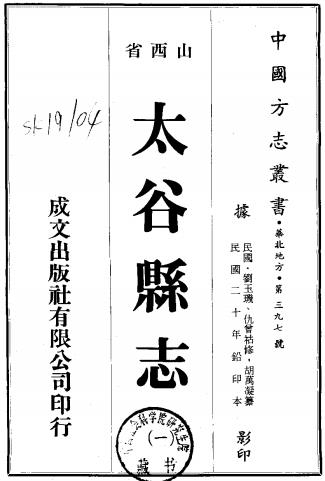 中國方志叢書・華北地方・第三九七號
據
民國・劉玉璣、仇曾祜修，胡萬凝纂
民國二十年鉛印本
影印
山西省
太谷縣志
(一)
藏书
成文出版社有限公司印行
SK19/04